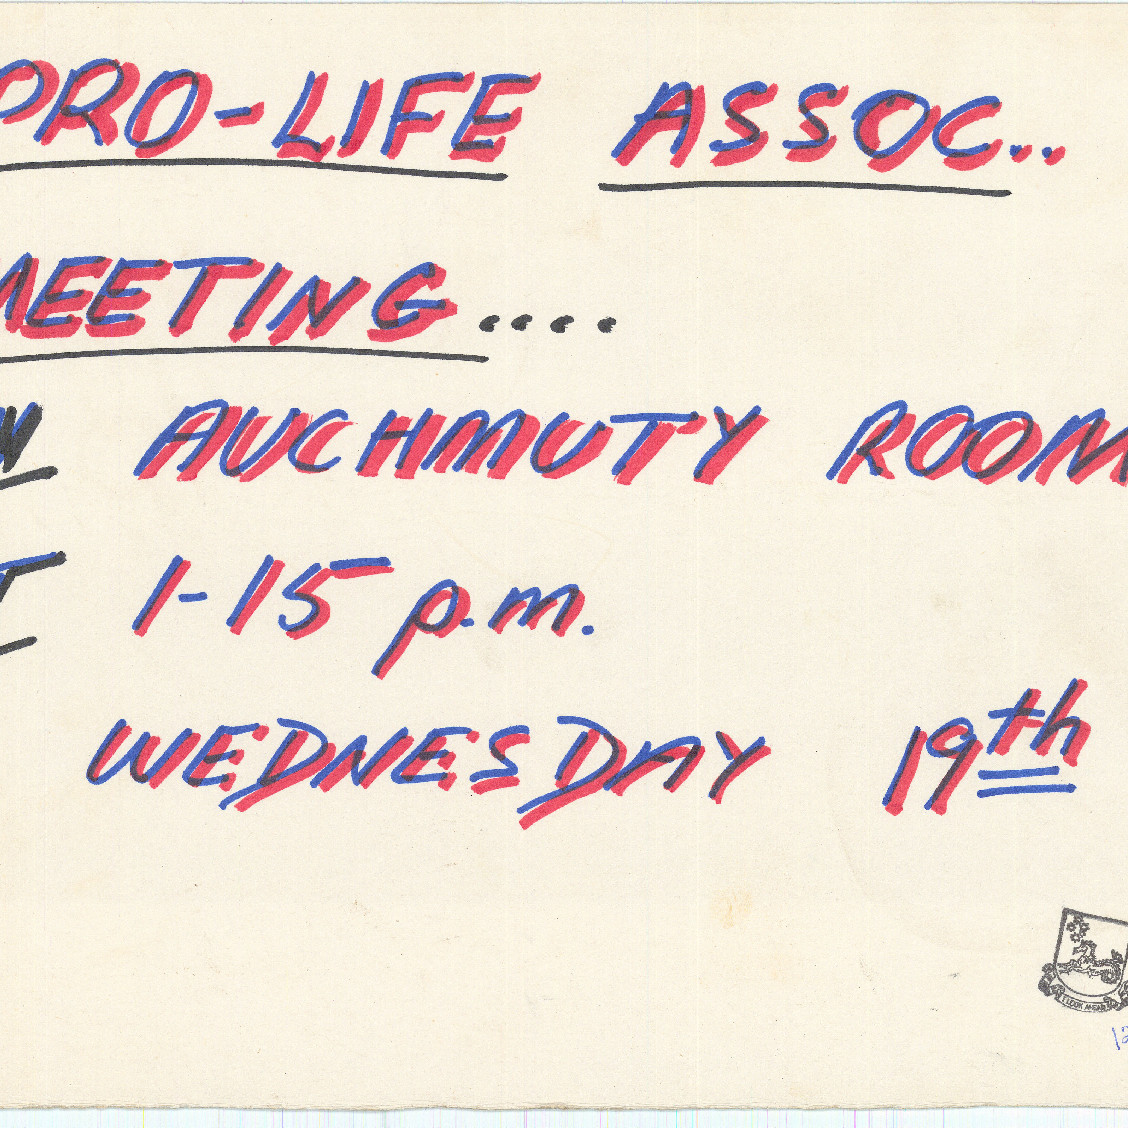 PRO-LIFE ASSOC..
MEETING....
AUCHMUTY ROOM
1-15 p.m.
WEDNESDAY 19th
I LOOK AHEAD
12